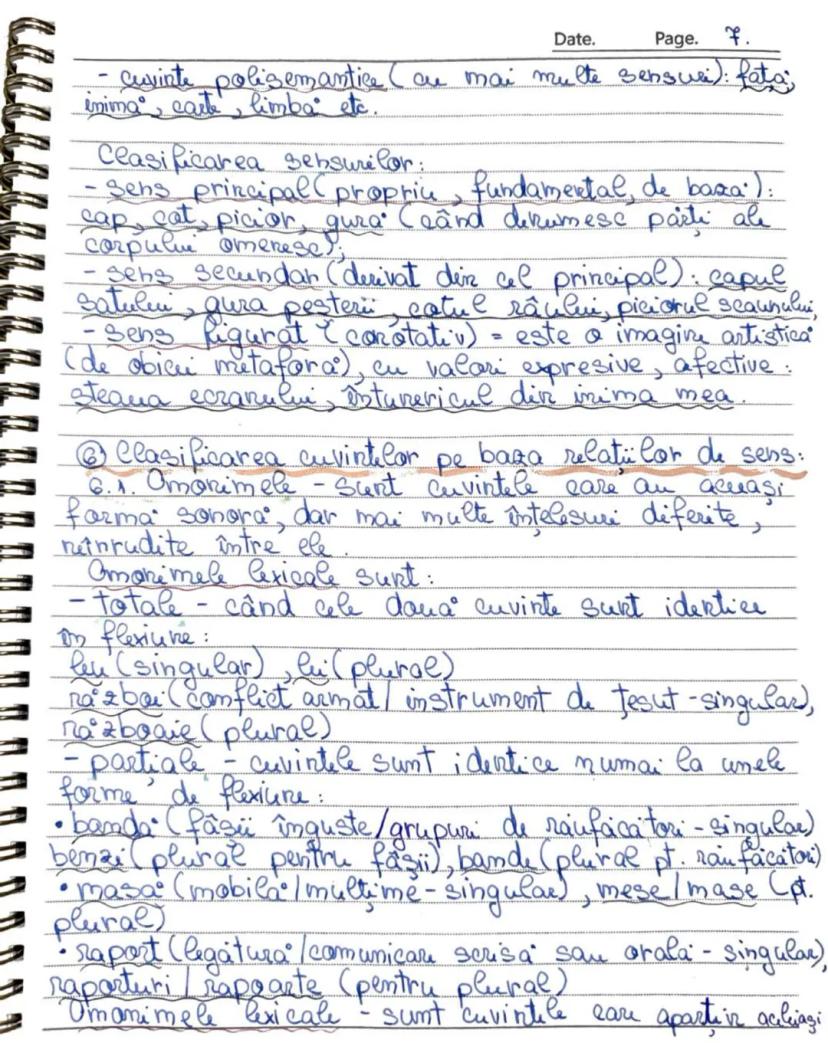 Date. Page. 7.
- cuvinte polisemantice (cu mai multe sensuri): fața,
inimă, carte, limbă etc.
Clasificarea sensurilor:
- sens principal (propriu, fundamental, de bază):
cap, cot, picior, gură (când denumesc părți ale
corpului omenesc);
- sens secundar (derivat din cel principal): capul
satului, gura peșterii, cotul râului, piciorul scaunului,
- sens figurat (conotativ) = este o imagine artistică
(de obicei metaforă), cu valori expresive, afective:
steaua ecranului, întunericul din inima mea.
⑥ Clasificarea cuvintelor pe baza relațiilor de sens:
6.1. Omonimele - sunt cuvintele care au aceeași
formă sonoră, dar mai multe înțelesuri diferite,
neînrudite între ele.
Omonimele lexicale sunt:
- totale - când cele două cuvinte sunt identice
în flexiune:
leu (singular), lei (plural)
război (conflict armat / instrument de țesut - singular),
războaie (plural)
- parțiale - cuvintele sunt identice numai la unele
forme de flexiune:
• bandă (fâșii înguste/grupuri de răufăcători - singular)
benzi (plural pentru fâșii), bande (plural pt. răufăcători)
• masă (mobilă/mulțime - singular), mese/mase (pt.
plural)
• raport (legătură/comunicare scrisă sau orală - singular),
raporturi / rapoarte (pentru plural)
Omonimele lexicale - sunt cuvintele care aparțin aceleiași